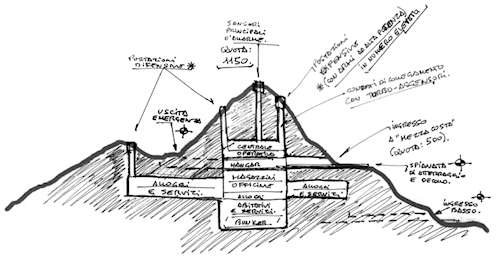 SENSORI
PRINCIPALI
D'ALLARME.
QUOTA:
1150.
POSTAZIONI
DIFENSIVE *
POSTAZIONI
DIFENSIVE
* (CON ARMI AD ALTA POTENZA)
IN NUMERO ELEVATO
CONDOTTI DI COLLEGAMENTO
CON TURBO-ASCENSORI.
USCITA
EMERGENZA
INGRESSO
A "MEZZA COSTA"
(QUOTA: 500).
SPIANATA
DI ATTERRAGGIO
E DECOLLO.
INGRESSO
BASSO.
CENTRALE
OPERATIVA
HANGAR
MAGAZZINI
OFFICINE
ALLOGGI
E SERVIZI.
ALLOGGI
E SERVIZI.
ALLOGGI
ABITATIVI
E SERVIZI.
BUNKER